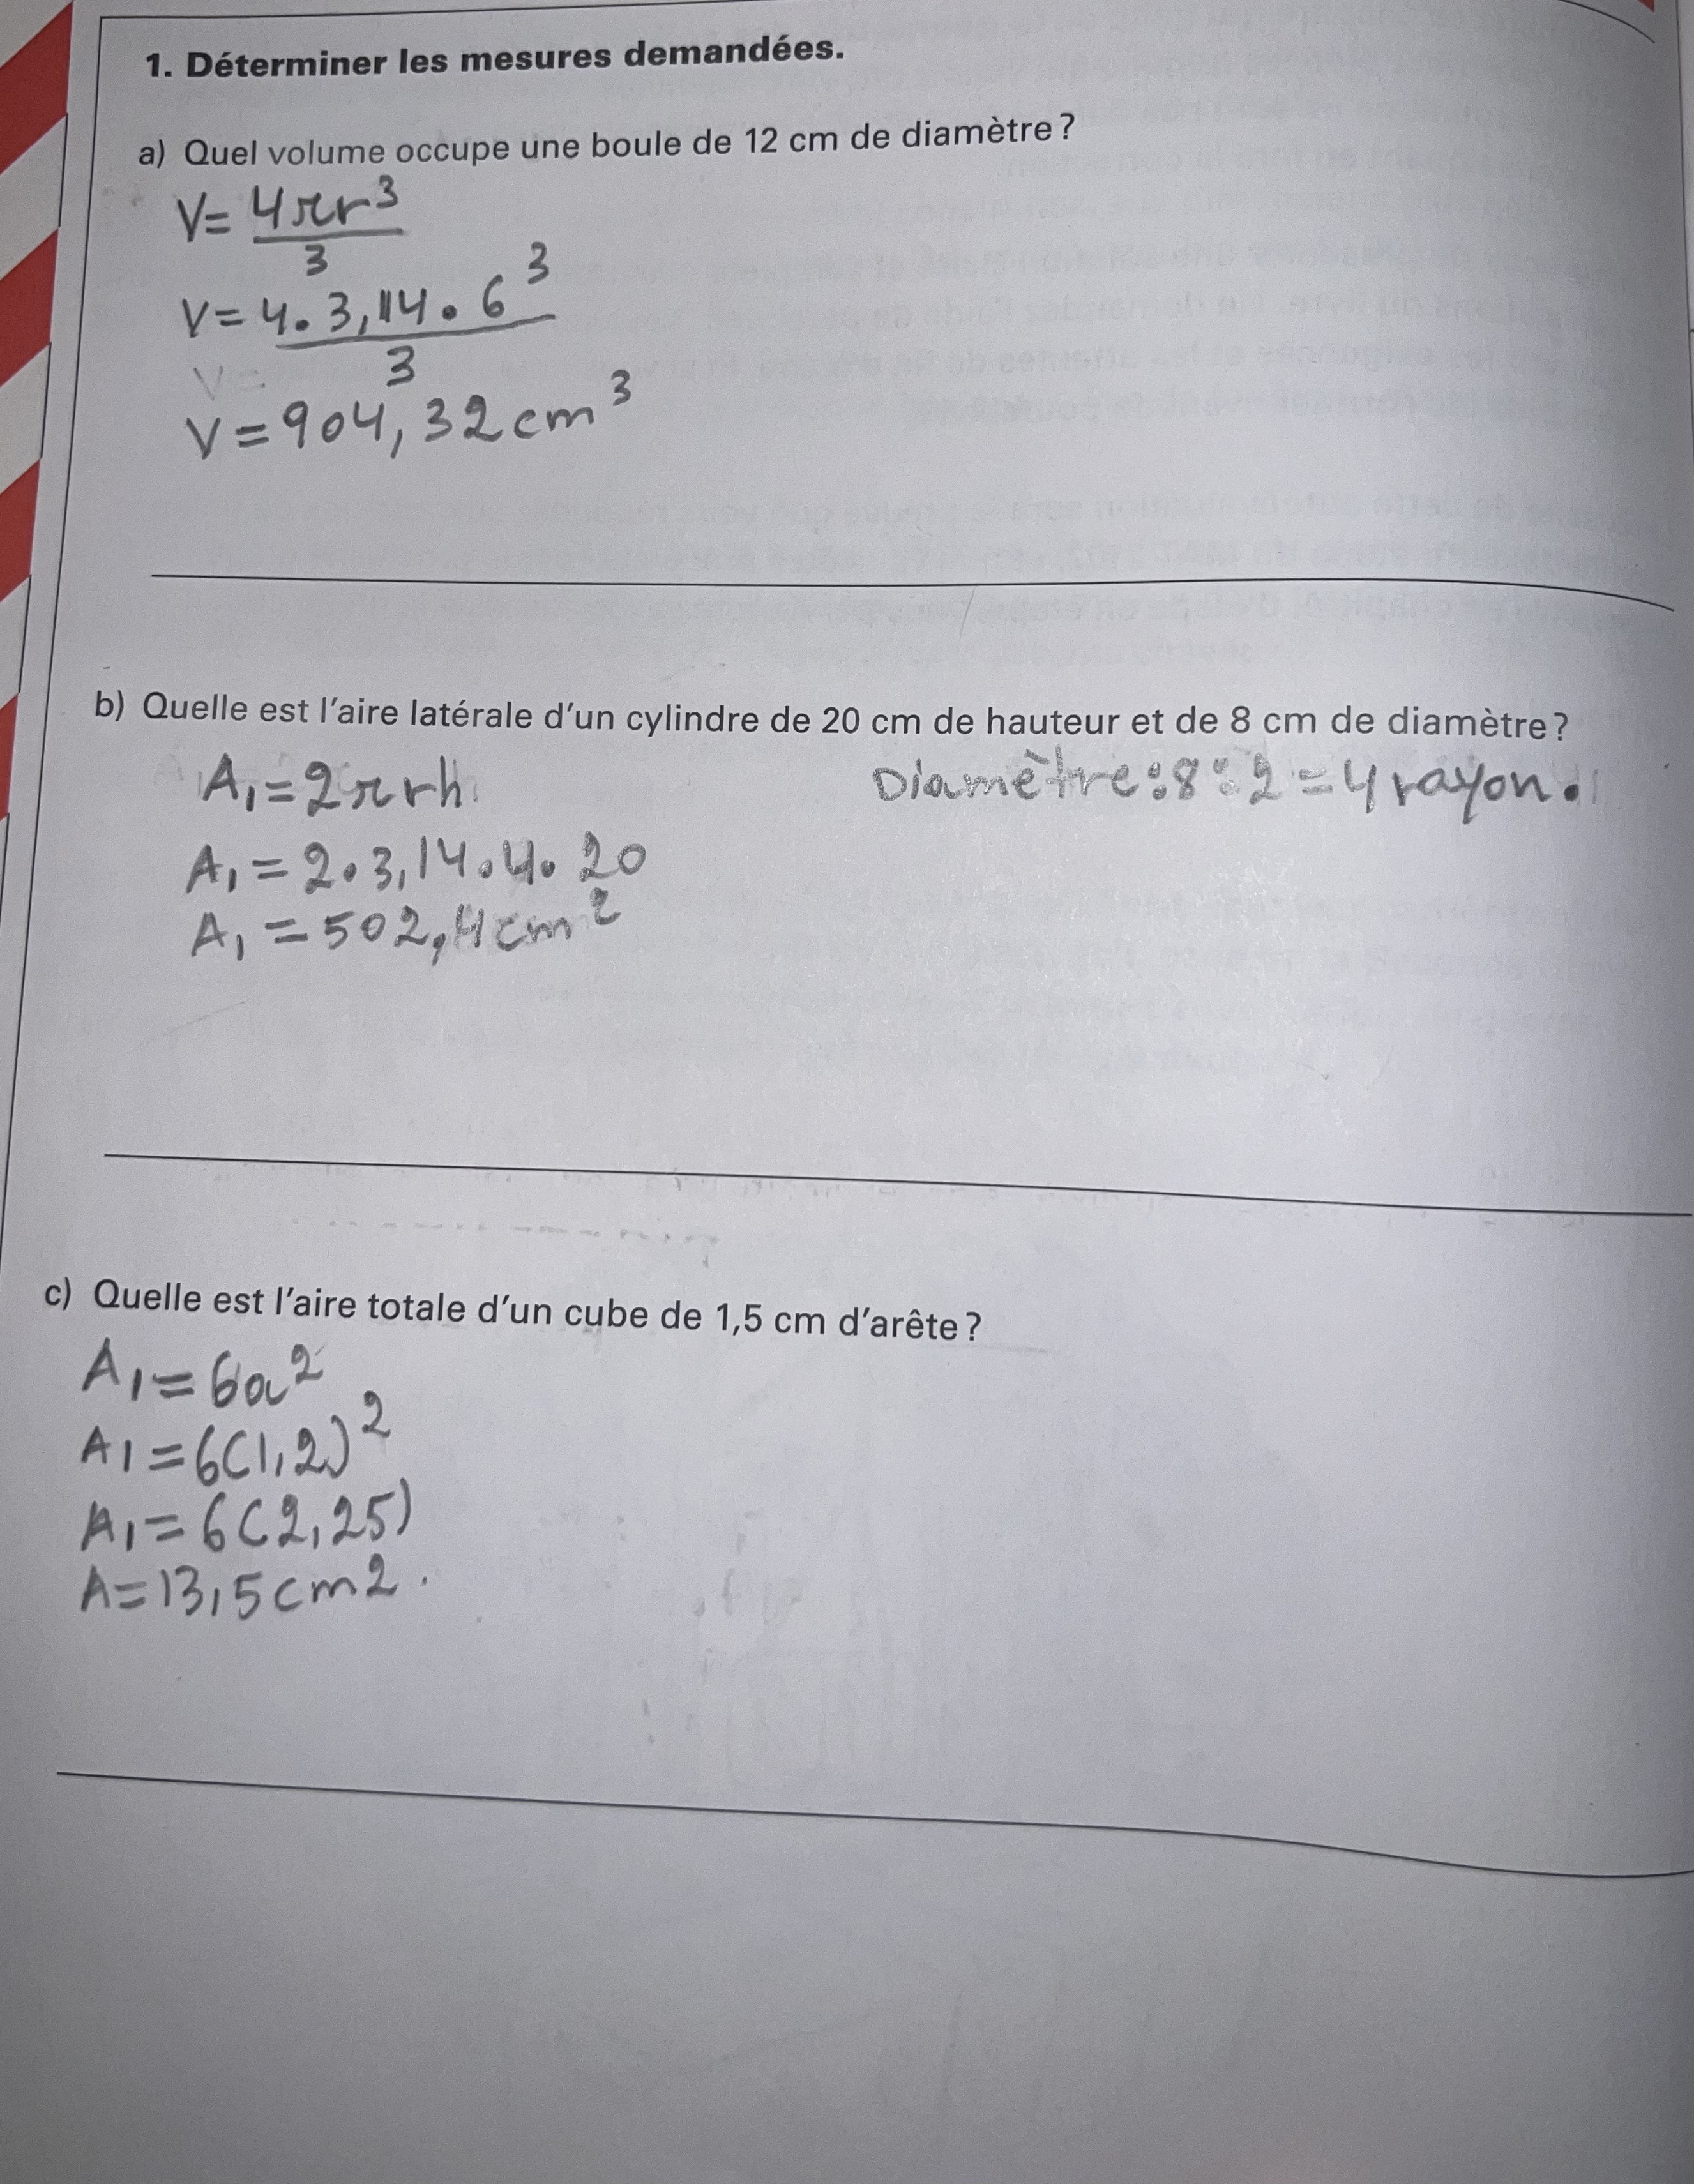 1. Déterminer les mesures demandées.
a) Quel volume occupe une boule de 12 cm de diamètre ?
V= 4πr³
3
V= 4. 3,14 . 6³
3
V=
V = 904,32 cm³
b) Quelle est l'aire latérale d'un cylindre de 20 cm de hauteur et de 8 cm de diamètre ?
A₁ = 2πrh Diamètre : 8 : 2 = 4 rayon.
A₁ = 2.3,14.4. 20
A₁ = 502,4 cm²
c) Quelle est l'aire totale d'un cube de 1,5 cm d'arête ?
A₁ = 6a²
A₁ = 6(1,2)²
A₁ = 6(2,25)
A = 13,5 cm2.